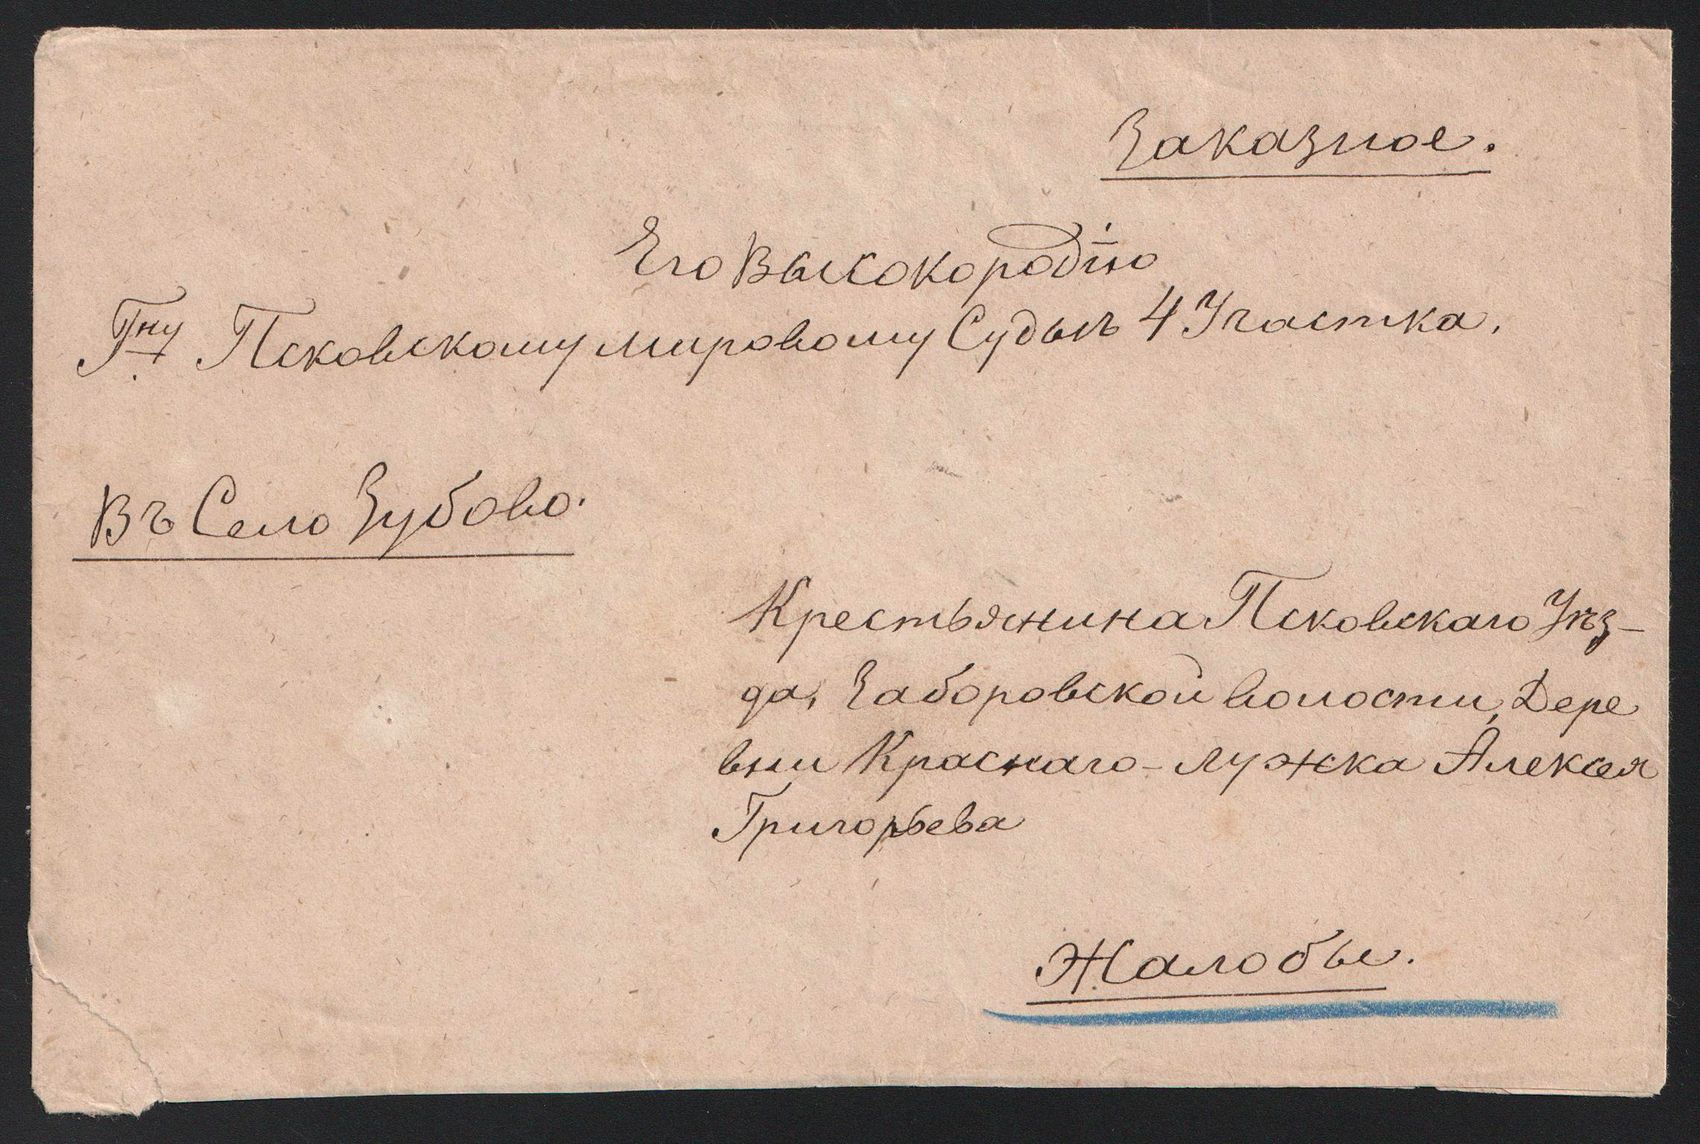 Заказное.
Его Высокородію
Гну Псковскому мировому Судьѣ 4 Участка.
Въ Село Зубово.
Крестьянина Псковскаго Уѣз-
да, Заборовской волости, Дере
вни Краснаго-лужка Алексея
Григорьева
Жалобы.